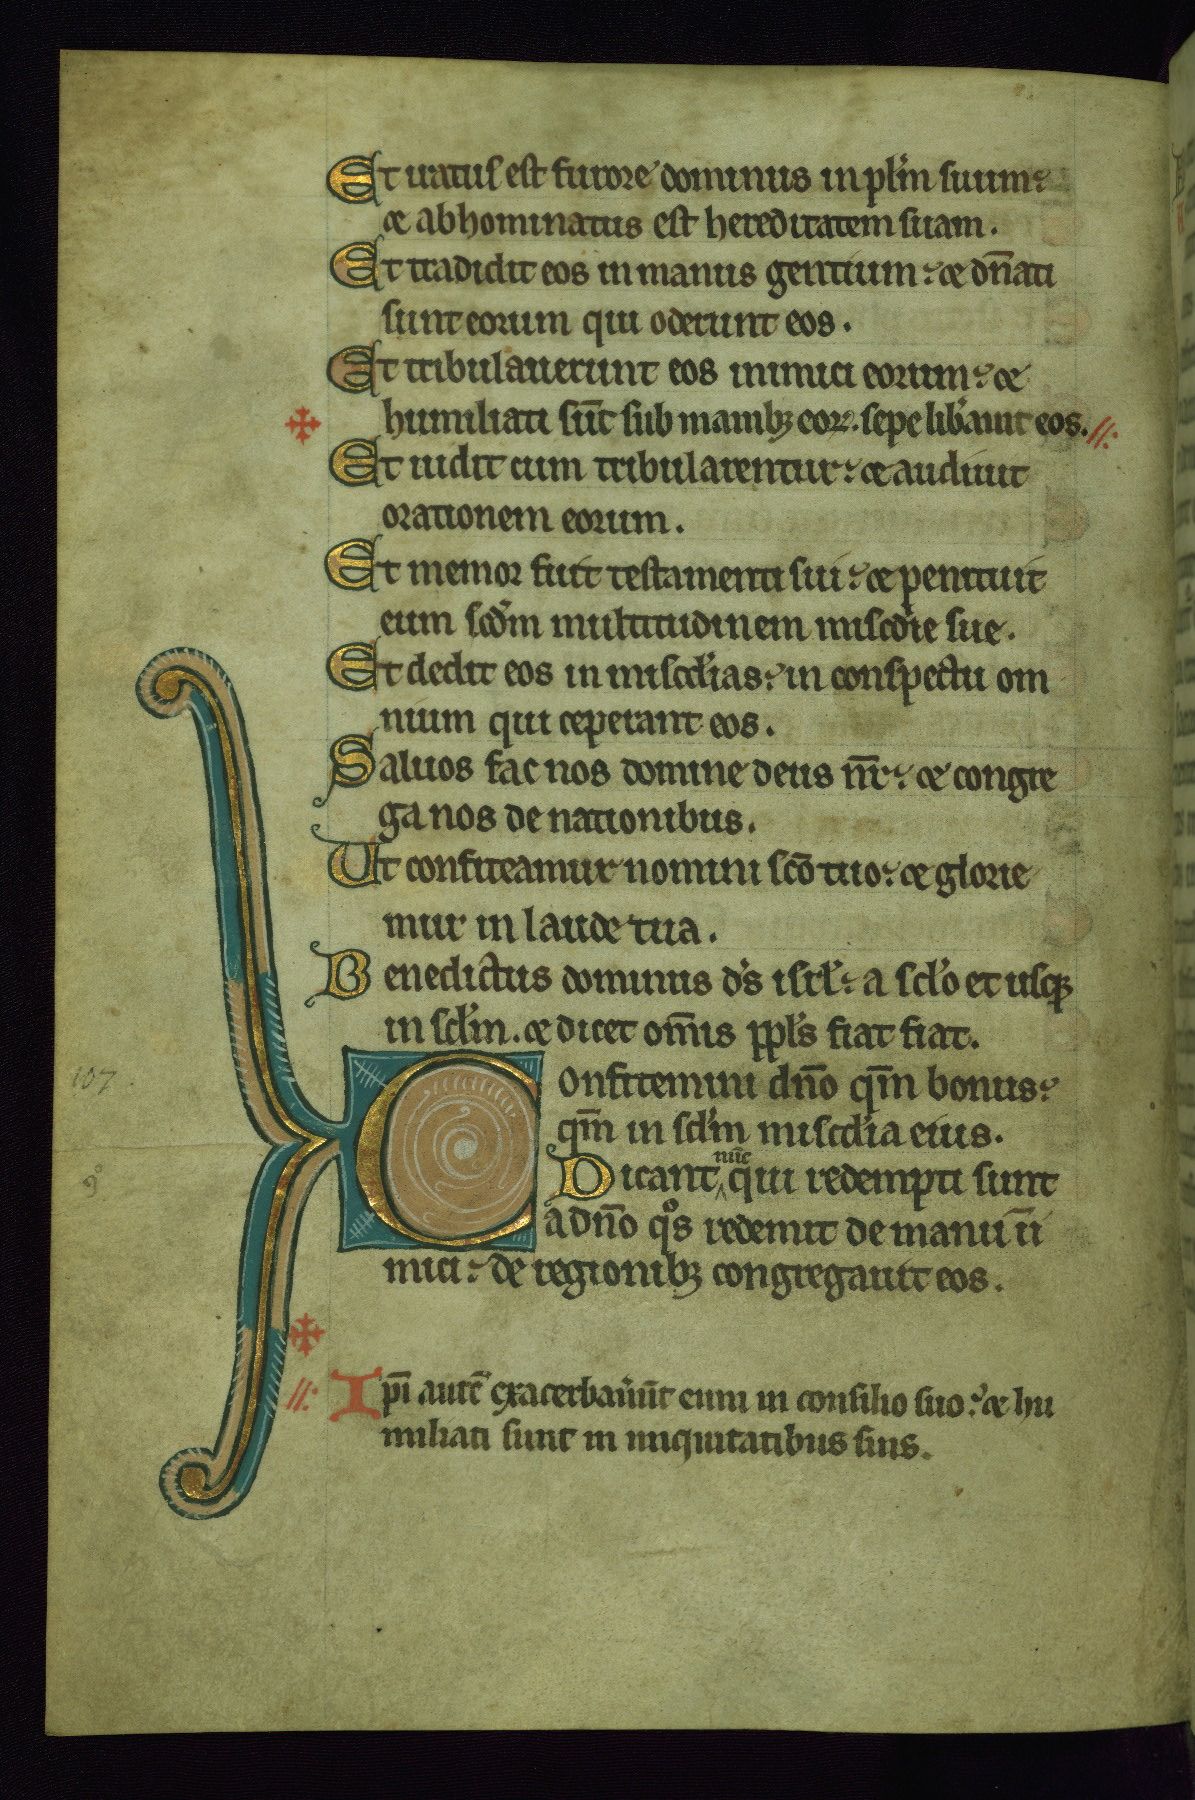 Et iratus est furore dominus in pl̄m suum:
et abhominatus est hereditatem suam.
Et tradidit eos in manus gentium: et dn̄ati
sunt eorum qui oderunt eos.
Et tribulauerunt eos inimici eorum: et
humiliati sūt sub manibꝫ eoꝝ. sepe lib̄auit eos.//:
Et uidit cum tribularentur: et audiuit
orationem eorum.
Et memor fuit testamenti sui: et penituit
eum scd̄m multitudinem miscd̄ie sue.
Et dedit eos in miscd̄ias: in conspectu om
nium qui ceperant eos.
Saluos fac nos domine deus nr̄: et congre
ga nos de nationibus.
Ut confiteamur nomini scō tuo: et glorie
mur in laude tua.
Benedictus dominus ds̄ isrl̄: a scl̄o et usqꝫ
in scl̄m. et dicet om̄is ppl̄s fiat fiat.
107
Confitemini dn̄o qm̄ bonus:
qm̄ in scl̄m miscd̄ia eius.
nūc
Dicant qui redempti sunt
9º
a dn̄o qºs redemit de manu īi
mici: de regionibꝫ congregauit eos.
//: Ipī autē exacerbauer̄ūt eum in consilio suo: et hu
miliati sunt in iniquitatibus suis.